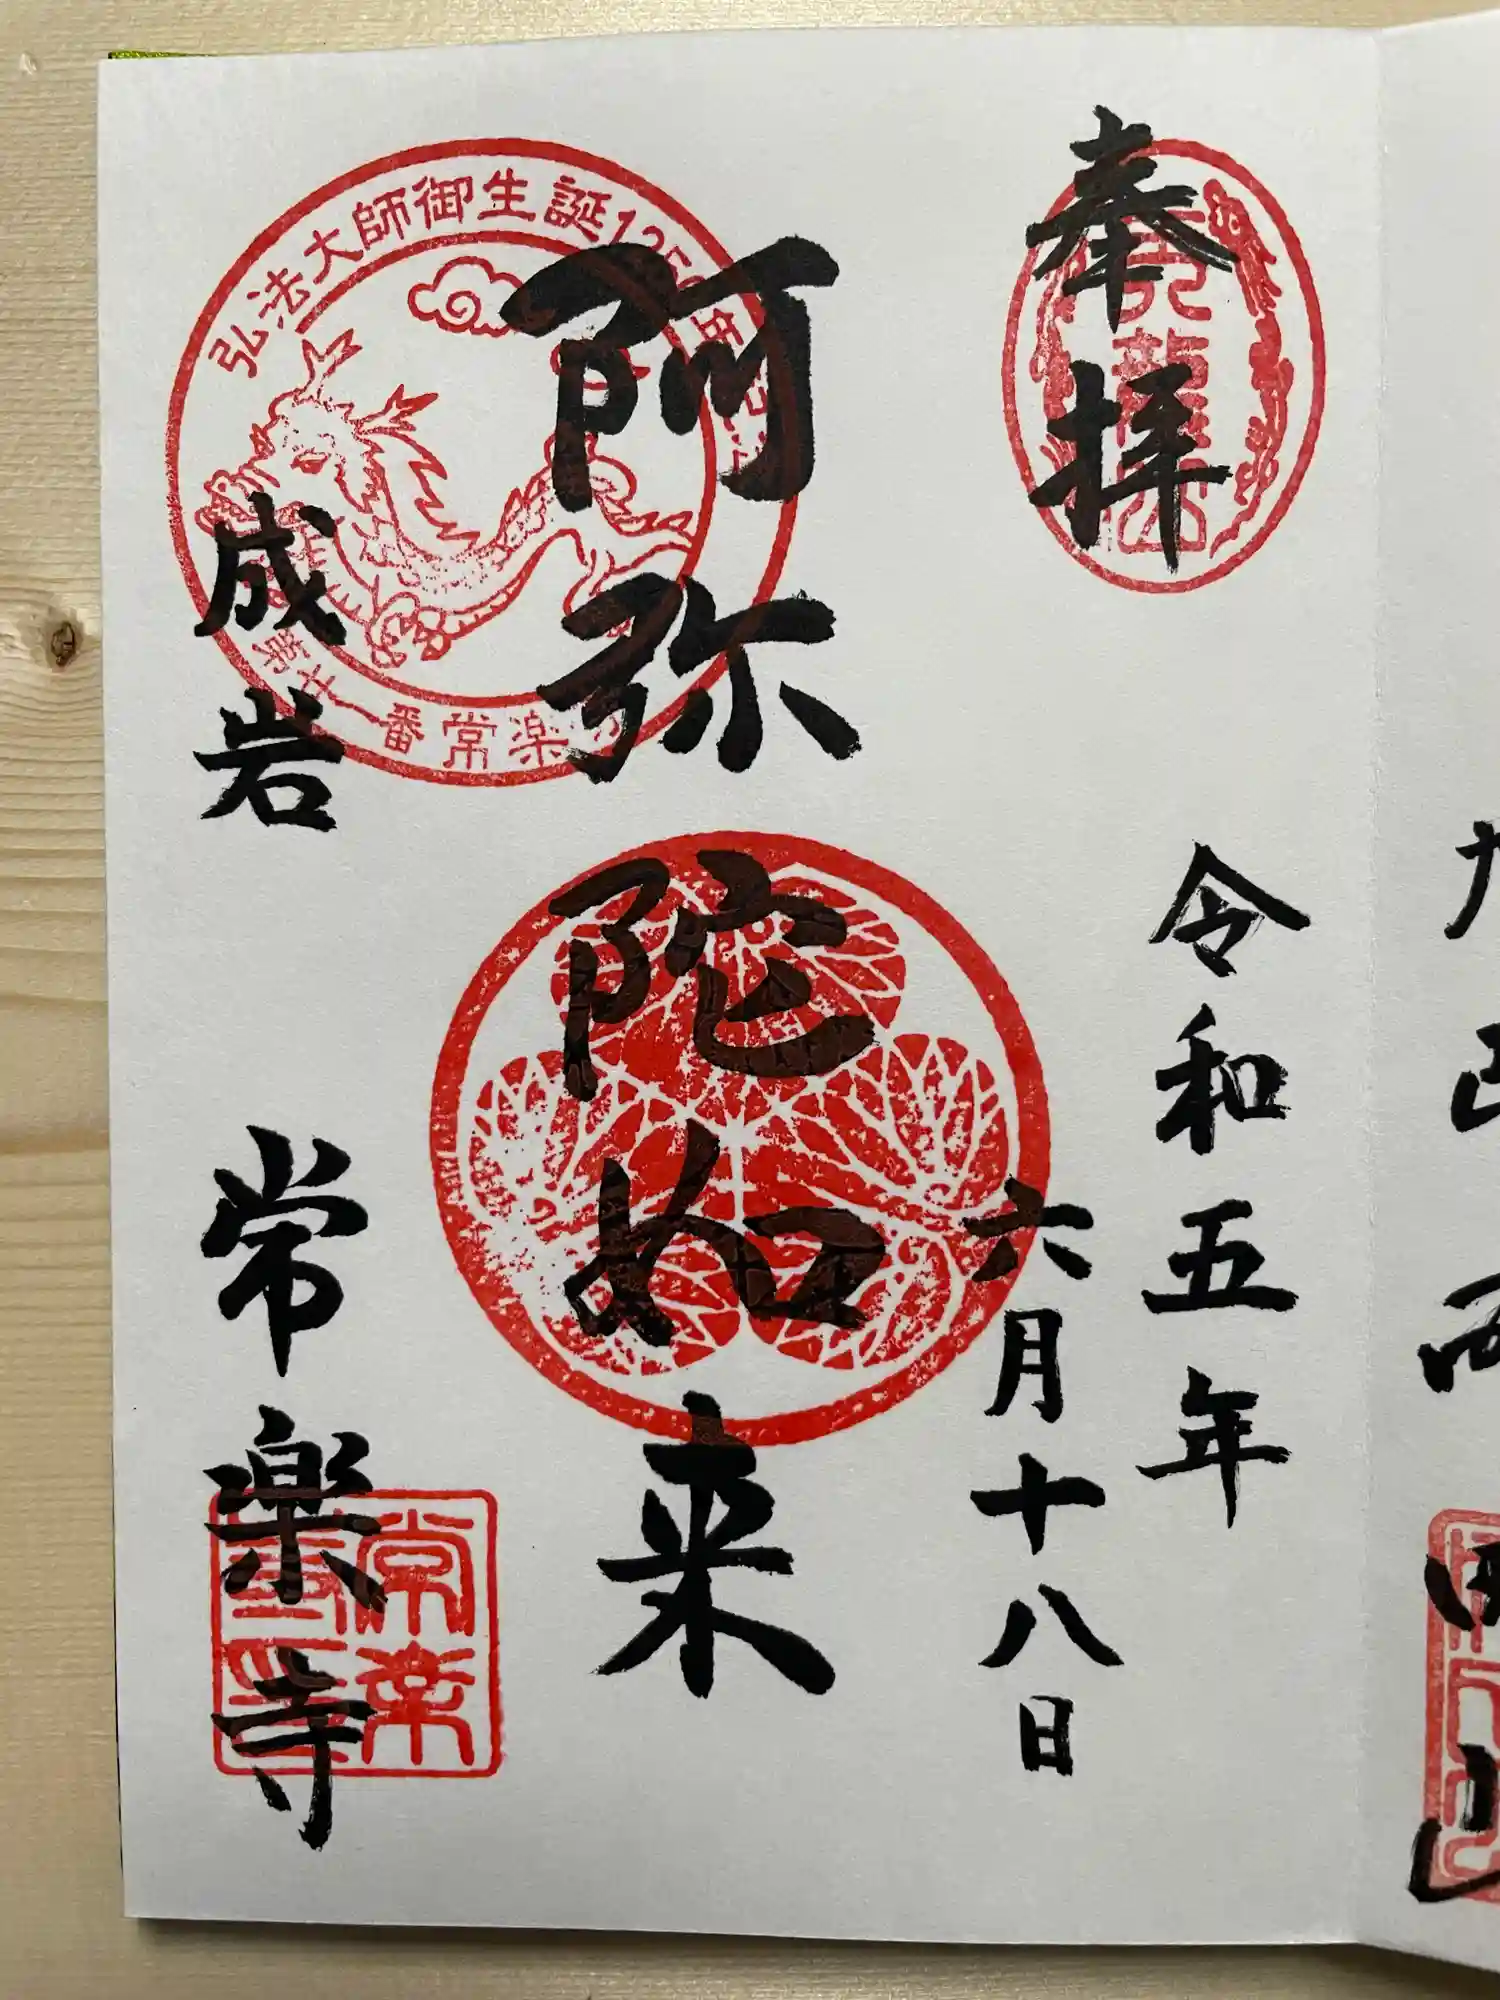 奉拝
令和五年
六月十八日
阿弥陀如来
成岩
常楽寺
弘法大師御生誕125
第廿一番常楽
常楽